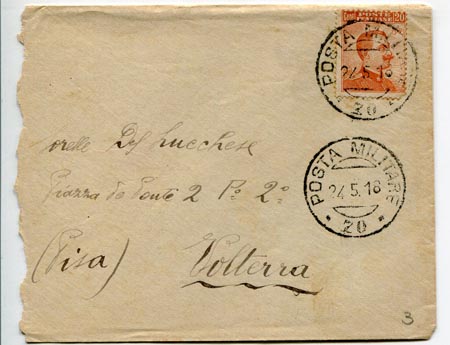 Cent. 20
POSTA MILITARE
24.5.18
20
POSTA MILITARE
24.5.18
20
Lucchese
Piazza 2 Po. 2o
(Pisa) Volterra
3